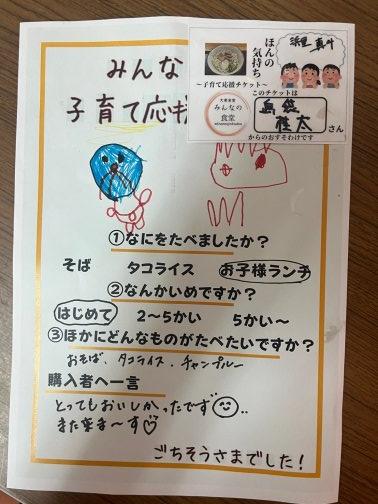 みんな
子育て応
ほんの
気持ち
～子育て応援チケット～
大衆食堂
みんなの
食堂
このチケットは
島袋
桂太
さん
からのおすそわけです
①なにをたべましたか?
そば タコライス お子様ランチ
②なんかいめですか?
はじめて 2～5かい 5かい～
③ほかにどんなものがたべたいですか?
おそば、タコライス、チャンプルー
購入者へ一言
とってもおいしかったです
また来ま～す♡
ごちそうさまでした!